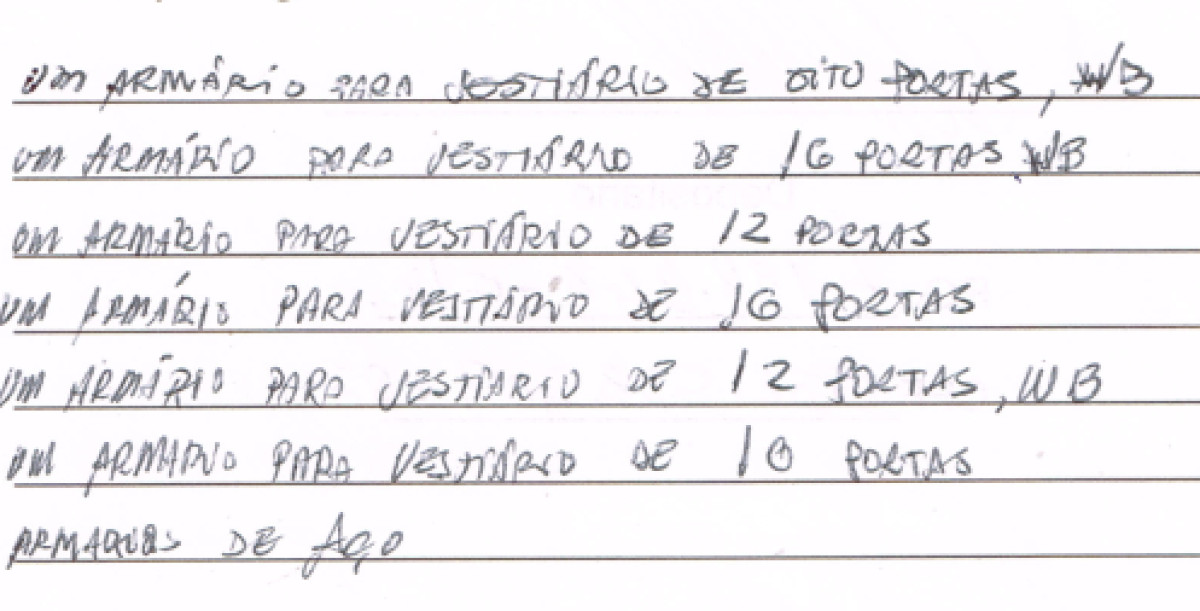 UM ARMÁRIO PARA VESTIÁRIO DE OITO PORTAS, WB
UM ARMÁRIO PARA VESTIÁRIO DE 16 PORTAS, WB
UM ARMARIO PARA VESTIÁRIO DE 12 PORTAS
UM ARMÁRIO PARA VESTIÁRIO DE 16 PORTAS
UM ARMÁRIO PARA VESTIARIO DE 12 PORTAS, WB
UM ARMARIO PARA VESTIÁRIO DE 10 PORTAS
ARMARIOS DE AÇO